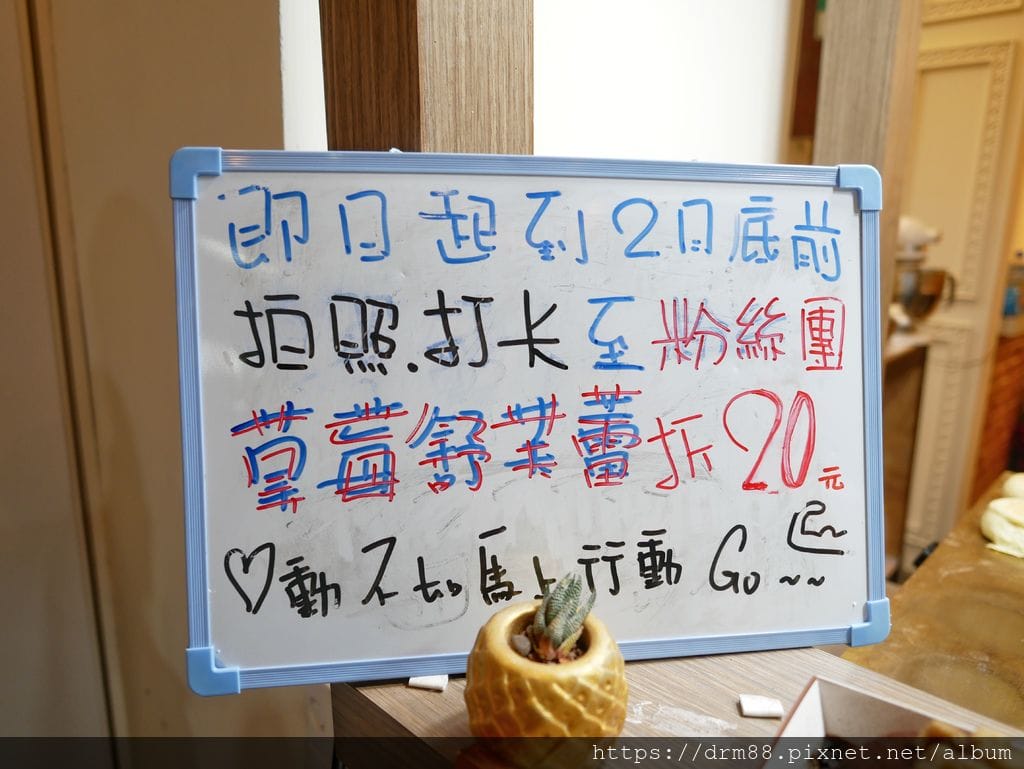 即日起到2月底前
拍照.打卡至粉絲團
草莓舒芙蕾折20元
♡動不如馬上行動 Go~~
https://drm88.pixnet.net/album